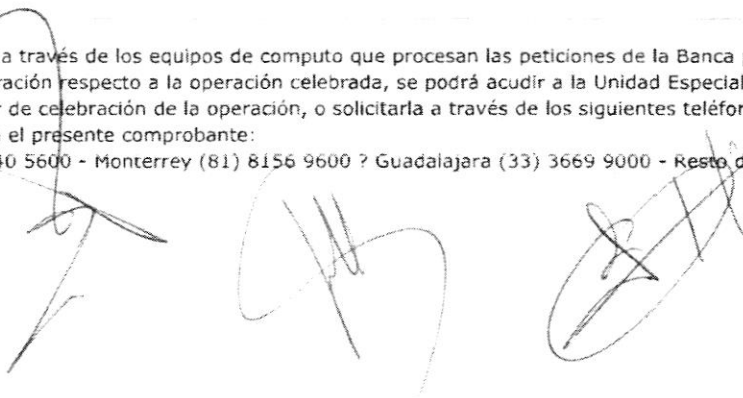 a través de los equipos de computo que procesan las peticiones de la Banca
ración respecto a la operación celebrada, se podrá acudir a la Unidad Especial
r de celebración de la operación, o solicitarla a través de los siguientes teléfor
el presente comprobante:
40 5600 - Monterrey (81) 8156 9600 ? Guadalajara (33) 3669 9000 - Resto d